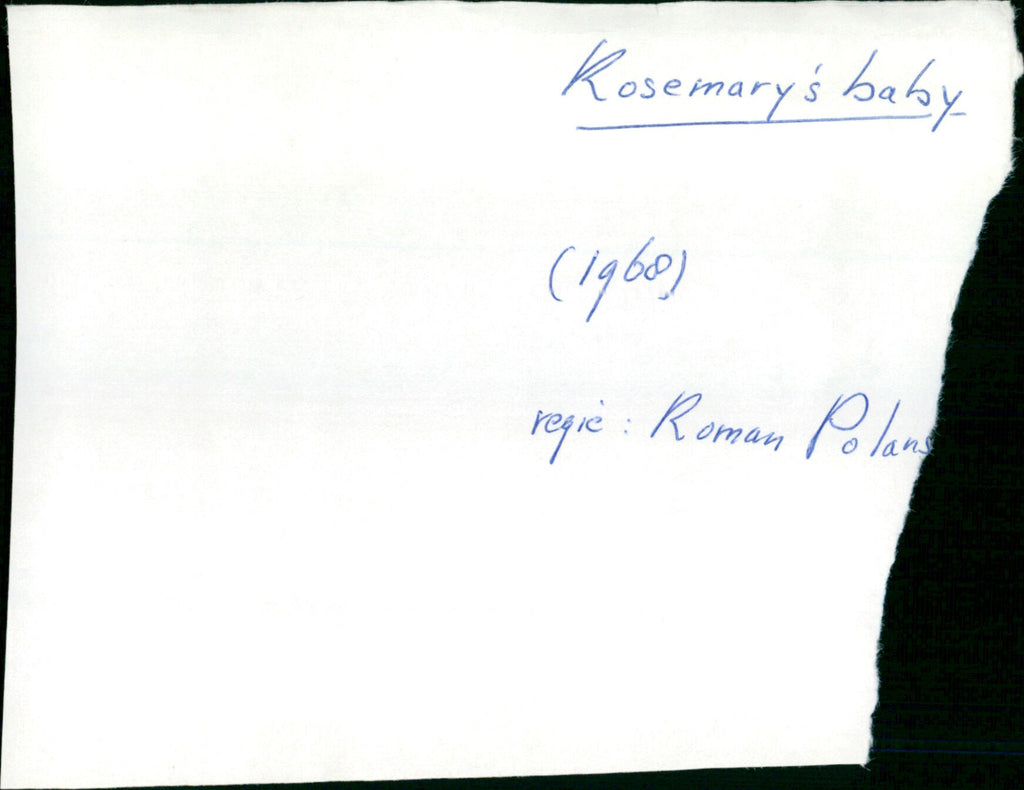 Rosemary's baby
(1968)
regie : Roman Polans